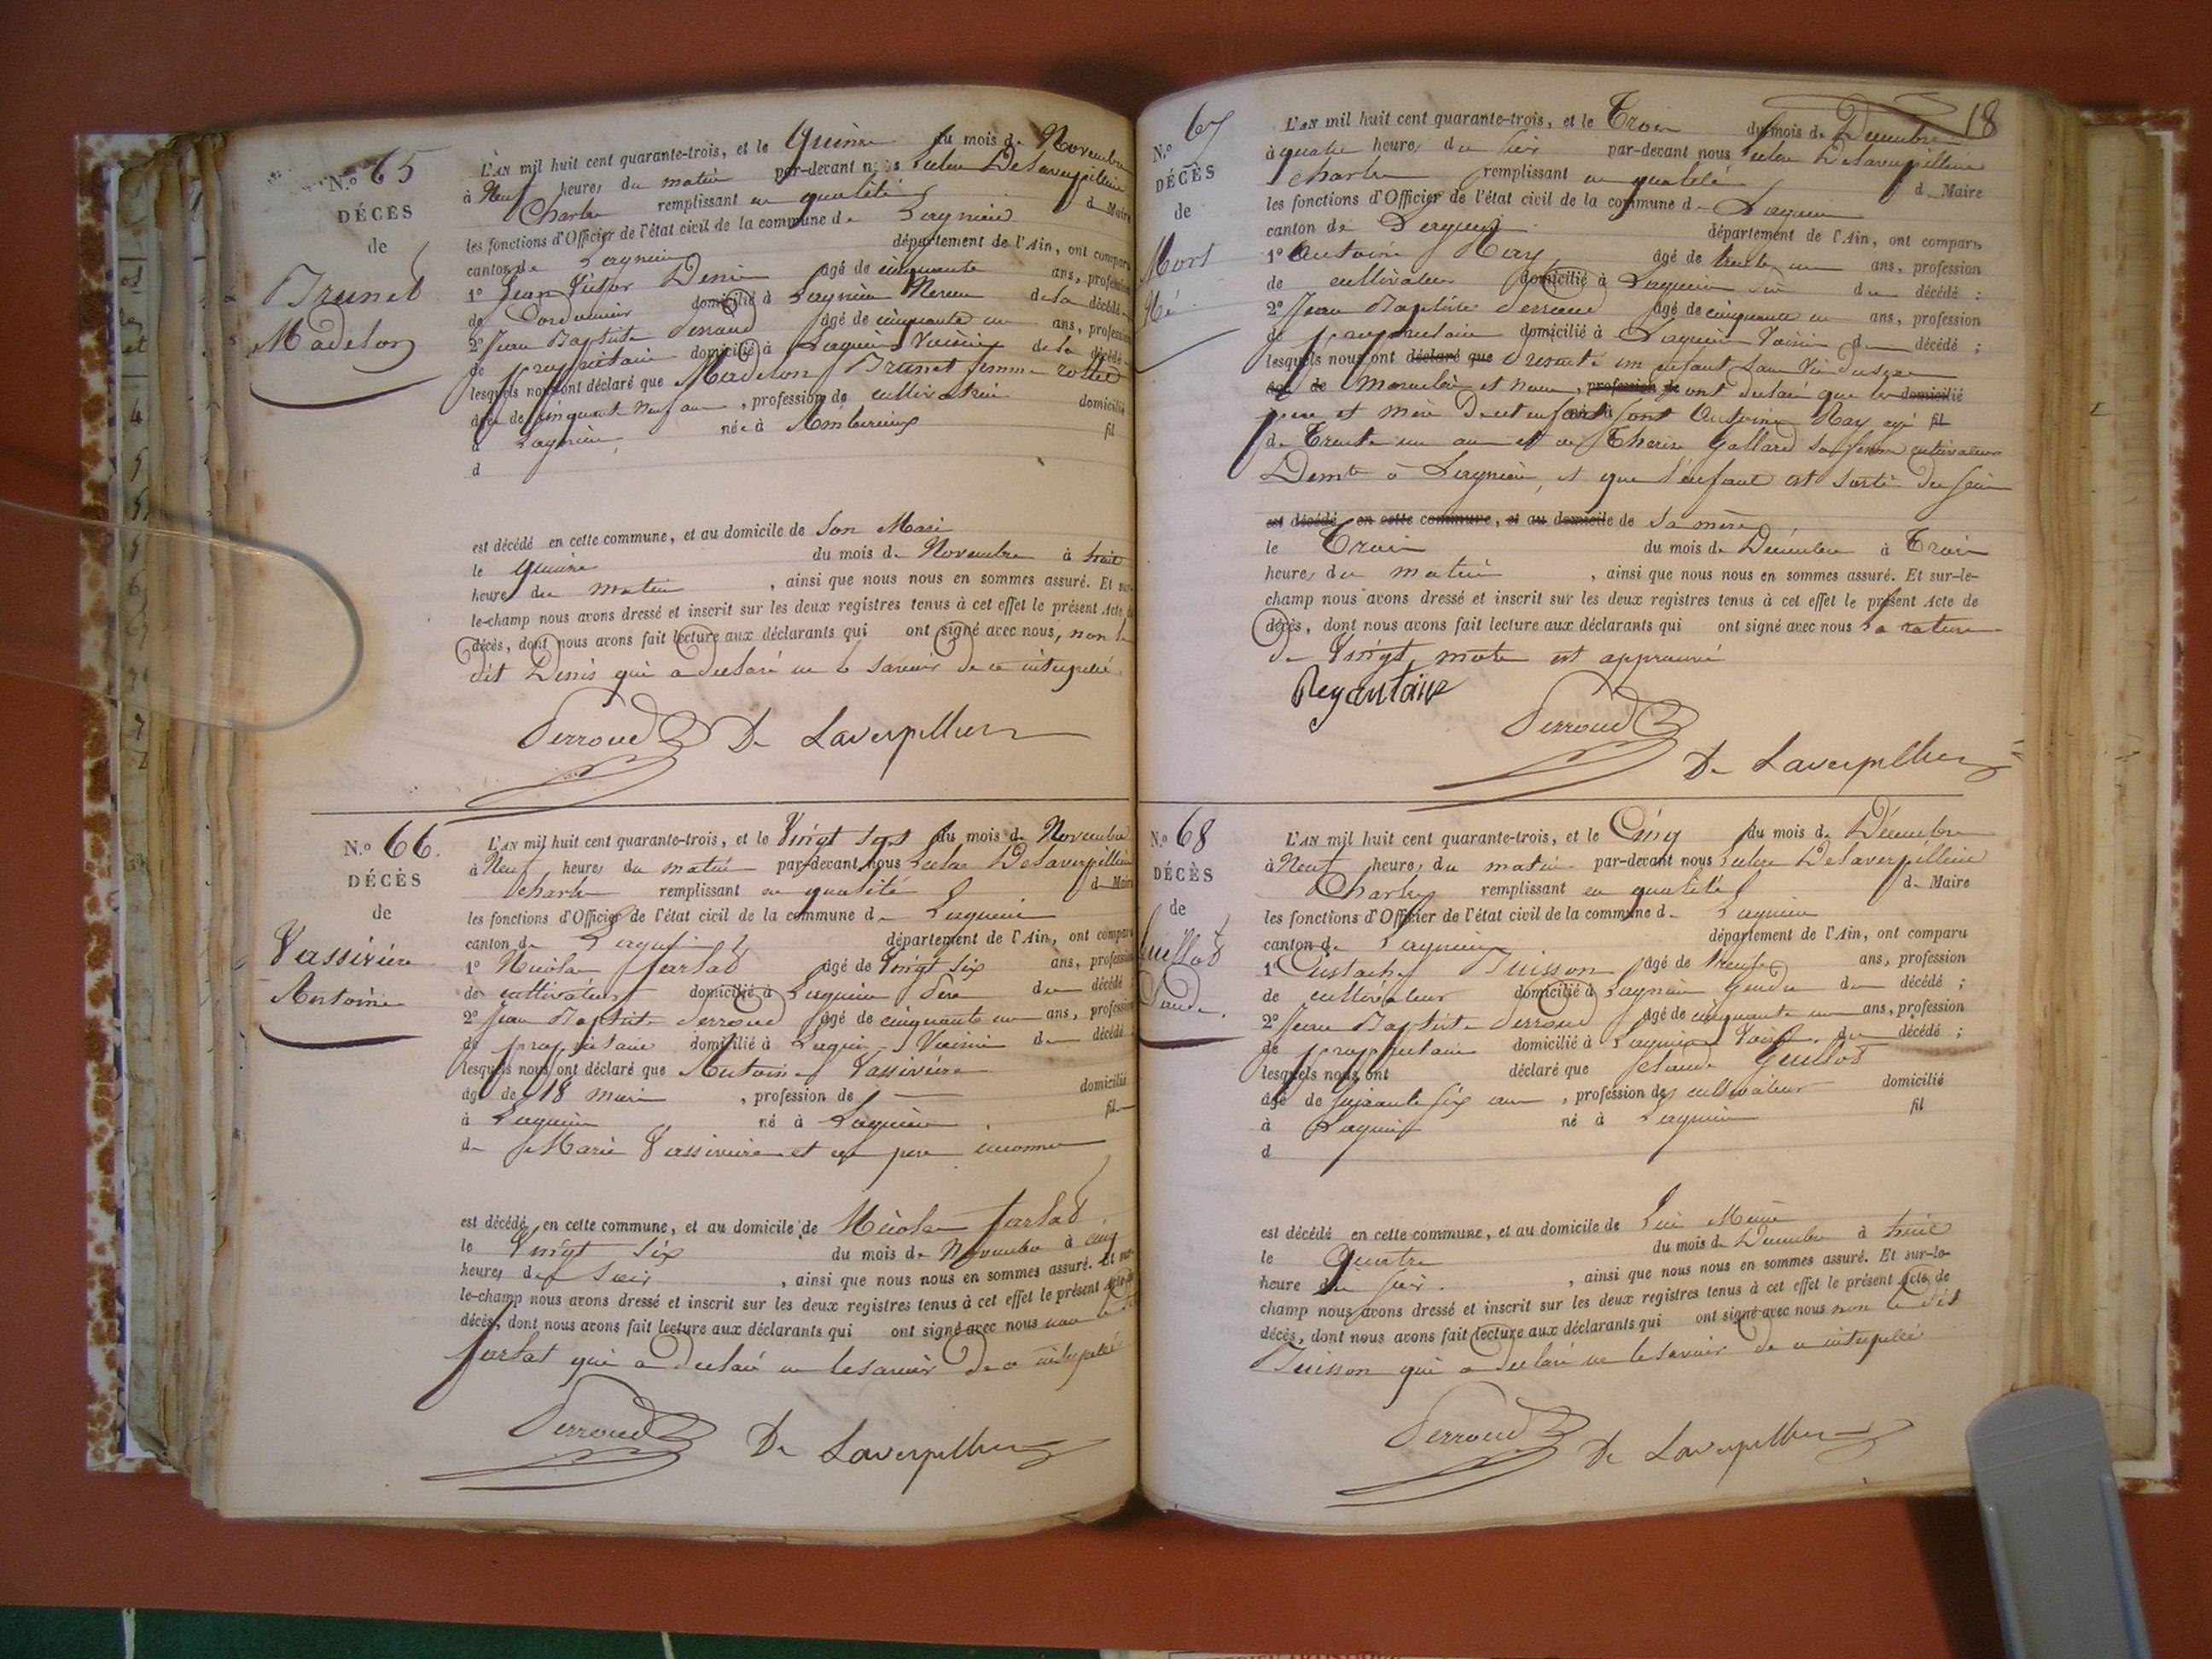 N.º 65
DÉCÈS
de
Brunet
Madelon
L'AN mil huit cent quarante-trois, et le Quinze du mois de Novembre
à Neuf heures du matin par-devant nous Delaverpillière
Charles remplissant en qualité de Maire
les fonctions d'Officier de l'état civil de la commune de Lagnieu
canton de Lagnieu département de l'Ain, ont comparu
1º Jean Victor Denis âgé de cinquante ans, profession
de Cordonnier domicilié à Lagnieu Neveu de la décédée
2º Jean Baptiste Perroud âgé de cinquante un ans, profession
de propriétaire domicilié à Lagnieu Voisin de la décédée
lesquels nous ont déclaré que Madelon Brunet femme
âgée de cinquante neuf ans, profession de cultivatrice domicilié
à Lagnieu née à Ambérieux fil
d
est décédé en cette commune, et au domicile de son Mari
le quinze du mois de Novembre à huit
heures du matin, ainsi que nous nous en sommes assuré. Et sur-
le-champ nous avons dressé et inscrit sur les deux registres tenus à cet effet le présent Acte de
décès, dont nous avons fait lecture aux déclarants qui ont signé avec nous, non le
dit Denis qui a déclaré ne le savoir de ce interpellé
Perroud De Laverpilliere
N.º 66.
DÉCÈS
de
Vassivière
Antoine
L'AN mil huit cent quarante-trois, et le Vingt sept du mois de Novembre
à Neuf heures du matin par-devant nous Delaverpillière
Charles remplissant en qualité de Maire
les fonctions d'Officier de l'état civil de la commune de Lagnieu
canton de Lagnieu département de l'Ain, ont comparu
1º Nicolas farlat âgé de Vingt six ans, profession
de cultivateur domicilié à Lagnieu du décédé
2º Jean Baptiste Perroud âgé de cinquante un ans, profession
de propriétaire domicilié à Lagnieu Voisin du décédé
lesquels nous ont déclaré que Antoine Vassivière
âgé de 18 mois, profession de — domicilié
à Lagnieu né à Lagnieu fils
de Marie Vassivière et de père inconnu
est décédé en cette commune, et au domicile de Nicolas farlat
le Vingt six du mois de Novembre à cinq
heures du soir, ainsi que nous nous en sommes assuré. Et sur-
le-champ nous avons dressé et inscrit sur les deux registres tenus à cet effet le présent Acte de
décès, dont nous avons fait lecture aux déclarants qui ont signé avec nous non le
farlat qui a déclaré ne le savoir de ce interpellé
Perroud De Laverpilliere
18
N.º 67
DÉCÈS
de
Mort
Né
L'AN mil huit cent quarante-trois, et le Trois du mois de Décembre
à quatre heures du soir par-devant nous Delaverpillière
Charles remplissant en qualité de Maire
les fonctions d'Officier de l'état civil de la commune de Lagnieu
canton de Lagnieu département de l'Ain, ont comparu
1º Antoine Ray âgé de trente un ans, profession
de cultivateur domicilié à Lagnieu du décédé ;
2º Jean Baptiste Perroud âgé de cinquante un ans, profession
de propriétaire domicilié à Lagnieu Voisin du décédé ;
lesquels nous ont déclaré que présenté un enfant sans Vie du sexe
âgé de Masculin et nous, profession de ont déclaré que les domicilié
père et mère de cet enfant né à sont Antoine Ray âgé fil
de Trente un ans et de Thérèse Gallard sa femme cultivateurs
Demt à Lagnieu, et que l'enfant est sorti du sein
est décédé en cette commune, et au domicile de sa mère
le Trois du mois de Décembre à Trois
heures du matin, ainsi que nous nous en sommes assuré. Et sur-le-
champ nous avons dressé et inscrit sur les deux registres tenus à cet effet le présent Acte de
décès, dont nous avons fait lecture aux déclarants qui ont signé avec nous la rature
de Vingt mots est approuvée
Rey antoine
Perroud
De Laverpilliere
N.º 68
DÉCÈS
de
Guillot
Claude.
L'AN mil huit cent quarante-trois, et le Cinq du mois de Décembre
à Neuf heures du matin par-devant nous Delaverpillière
Charles remplissant en qualité de Maire
les fonctions d'Officier de l'état civil de la commune de Lagnieu
canton de Lagnieu département de l'Ain, ont comparu
1º Eustache Buisson âgé de trente ans, profession
de cultivateur domicilié à Lagnieu gendre du décédé ;
2º Jean Baptiste Perroud âgé de cinquante un ans, profession
de propriétaire domicilié à Lagnieu Voisin du décédé ;
lesquels nous ont déclaré que Claude Guillot
âgé de soixante six ans, profession de cultivateur domicilié
à Lagnieu né à Lagnieu fil
d
est décédé en cette commune, et au domicile de Lui Même
le Quatre du mois de Décembre à huit
heure du soir, ainsi que nous nous en sommes assuré. Et sur-le-
champ nous avons dressé et inscrit sur les deux registres tenus à cet effet le présent Acte de
décès, dont nous avons fait lecture aux déclarants qui ont signé avec nous non le dit
Buisson qui a déclaré ne le savoir de ce interpellé
Perroud De Laverpilliere